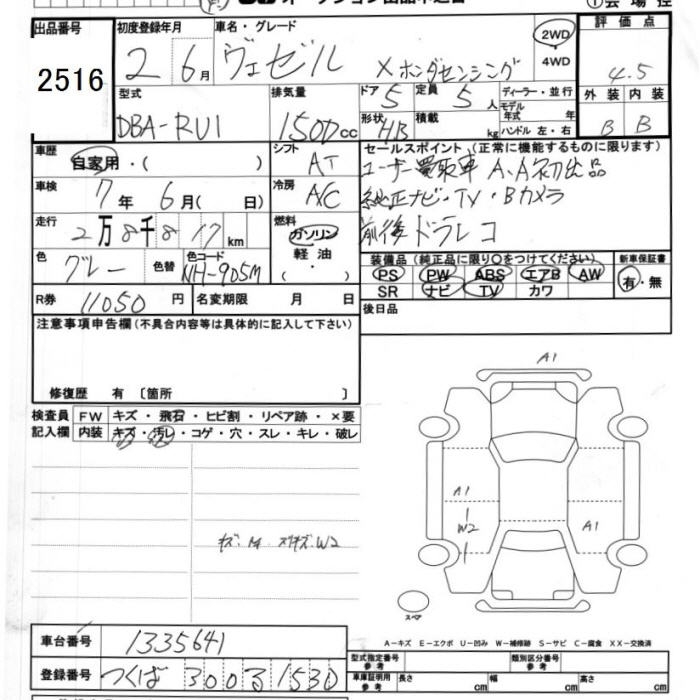 出品番号 2516
初度登録年月 2 6月
車名・グレード ヴェゼル X ホンダセンシング
2WD ・ 4WD
評価点 4.5
外装 内装
B B
型式 DBA-RU1
排気量 1500cc
ドア 5 定員 5人
形状 HB 積載 kg
ディーラー・並行
モデル年式 年
ハンドル 左・右
車歴 自家用・( )
シフト AT
車検 7年 6月( 日)
冷房 A/C
走行 2万8千817km
燃料 ガソリン 軽油 ・( )
色 グレー 色替 色コード NH-905M
R券 11050円 名変期限 月 日
セールスポイント(正常に機能するものに限ります)
ユーザー買取車 A.A初出品
純正ナビ・TV・Bカメラ
前後ドラレコ
装備品(純正品に限り○をつけてください) 新車保証書
PS PW ABS エアB AW 有・無
SR ナビ TV カワ
後日品
注意事項申告欄(不具合内容等は具体的に記入して下さい)
修復歴 有〔箇所 〕
検査員 FW キズ・飛石・ヒビ割・リペア跡・×要
記入欄 内装 キズ・汚レ・コゲ・穴・スレ・キレ・破レ
W2
A1
A1
W2
A1
スペア
A-キズ E-エクボ U-凹み W-補修跡 S-サビ C-腐食 XX-交換済
車台番号 1335641
登録番号 つくば 300 る 1530
型式指定番号 参考 類別区分番号 参考
車庫証明用 参考 長さ cm 幅 cm 高さ cm